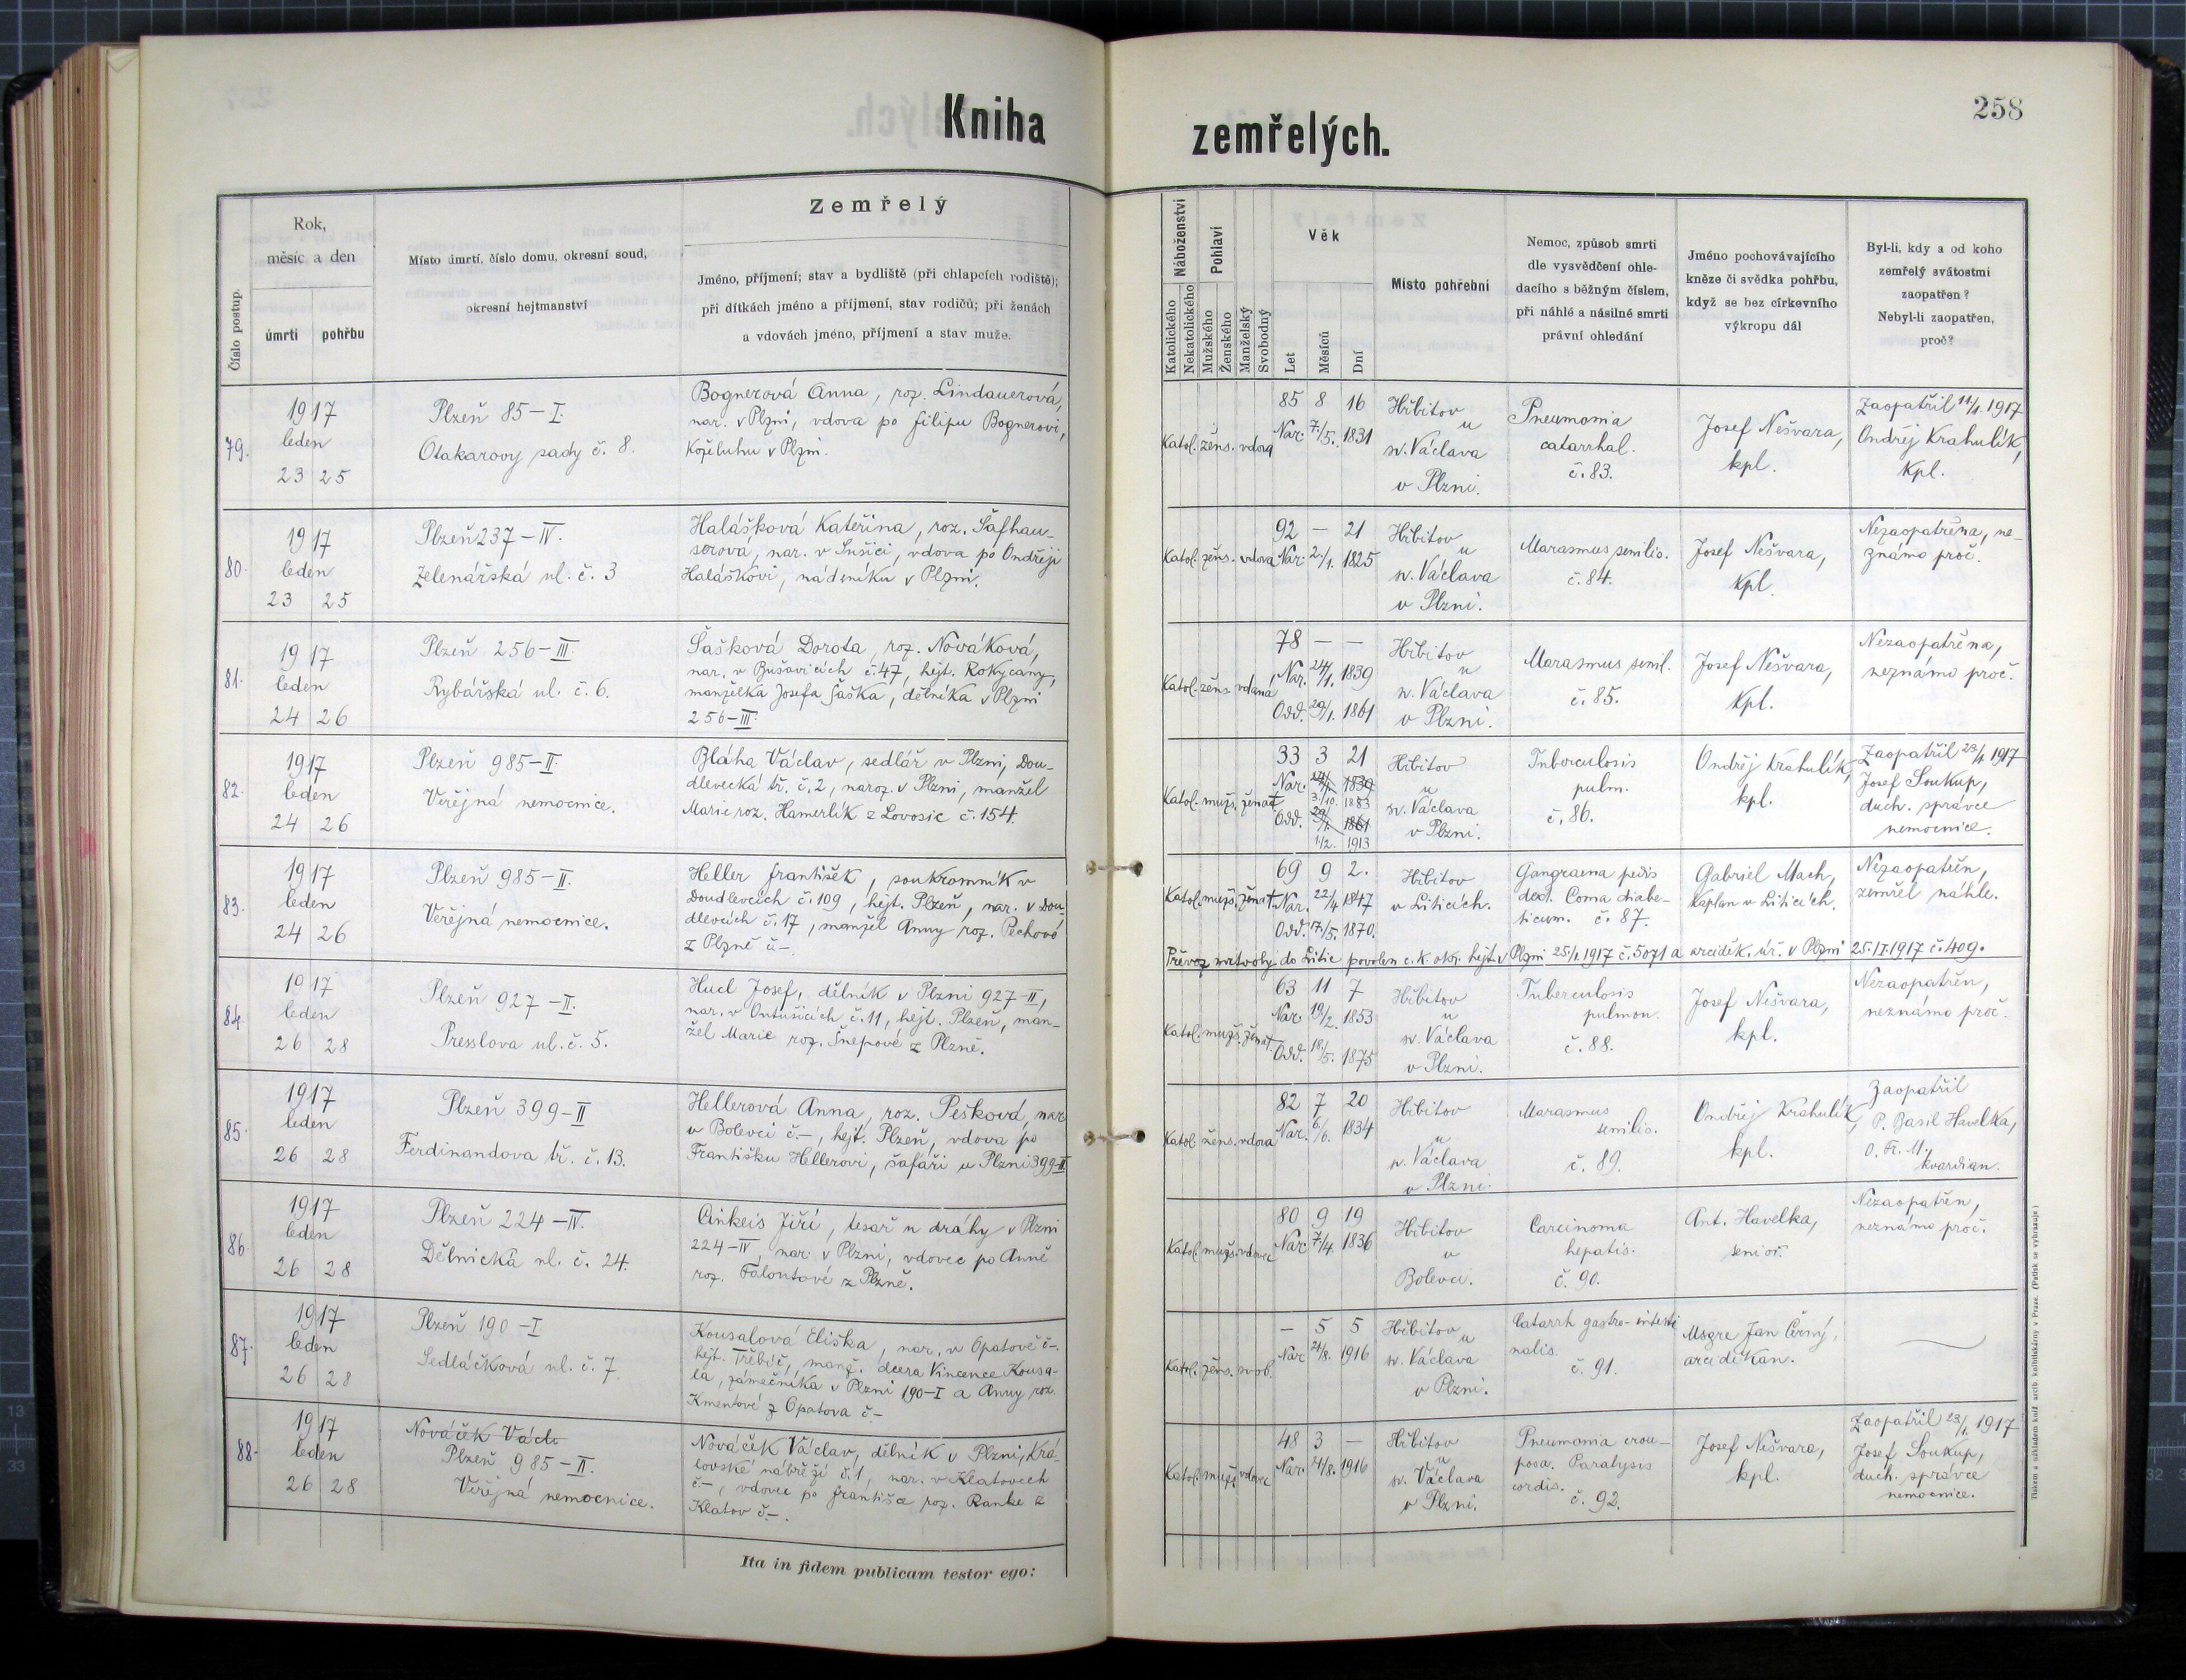 Kniha
zemřelých.
258
Číslo postup.
Rok,
měsíc a den
úmrtí
pohřbu
Místo úmrtí, číslo domu, okresní soud,
okresní hejtmanství
Zemřelý
Jméno, příjmení; stav a bydliště (při chlapcích rodiště);
při dítkách jméno a příjmení, stav rodičů; při ženách
a vdovách jméno, příjmení a stav muže.
Náboženství
Katolického
Nekatolického
Pohlaví
Mužského
Ženského
Manželský
Svobodný
Věk
Let
Měsíců
Dní
Místo pohřební
Nemoc, způsob smrti
dle vysvědčení ohle-
dacího s běžným číslem,
při náhlé a násilné smrti
právní ohledání
Jméno pochovávajícího
kněze či svědka pohřbu,
když se bez církevního
výkropu dál
Byl-li, kdy a od koho
zemřelý svátostmi
zaopatřen?
Nebyl-li zaopatřen,
proč?
79.
1917
leden
23 25
Plzeň 85-I.
Otakarovy sady č. 8.
Bognerová Anna, roz. Lindauerová,
nar. v Plzni, vdova po Filipu Bognerovi,
Koželuhu v Plzni.
Katol. žens. vdova
85 8 16
Nar. 7./5. 1831
Hřbitov
u
sv. Václava
v Plzni.
Pneumonia
catarrhal.
č. 83.
Josef Nešvara,
kpl.
Zaopatřil 11/1. 1917
Ondřej Krahulík,
Kpl.
80.
1917
leden
23 25
Plzeň 237-IV.
Zelenářská ul. č. 3
Halášková Kateřina, roz. Šafhau-
serová, nar. v Sušici, vdova po Ondřeji
Haláškovi, nádeníku v Plzni.
Katol. žens. vdova
92 - 21
Nar. 2./1. 1825
Hřbitov
u
sv. Václava
v Plzni.
Marasmus senilis.
č. 84.
Josef Nešvara,
Kpl.
Nezaopatřena, ne-
známo proč.
81.
1917
leden
24 26
Plzeň 256-III.
Rybářská ul. č. 6.
Šašková Dorota, roz. Nováková,
nar. v Bušovicích č. 47, hejt. Rokycany,
manželka Josefa Šaška, dělníka v Plzni
256-III.
Katol. žens. vdaná
78 - -
Nar. 24/1. 1839
Odd. 29/1. 1861
Hřbitov
u
sv. Václava
v Plzni.
Marasmus senil.
č. 85.
Josef Nešvara,
Kpl.
Nezaopatřena,
neznámo proč.
82.
1917
leden
24 26
Plzeň 985-II.
Veřejná nemocnice.
Bláha Václav, sedlář v Plzni, Dou-
dlevecká tř. č. 2, naroz. v Plzni, manžel
Marie roz. Hamerlík z Lovosic č. 154.
Katol. mužs. ženat
33 3 21
Nar. 24/1. 1839
3./10. 1883
Odd. 29/1. 1861
1./2. 1913
Hřbitov
u
sv. Václava
v Plzni.
Tuberculosis
pulm.
č. 86.
Ondřej Krahulík,
kpl.
Zaopatřil 23/1 1917
Josef Soukup,
duch. správce
nemocnice.
83.
1917
leden
24 26
Plzeň 985-II.
Veřejná nemocnice.
Heller František, soukromník v
Doudlevcích č. 109, hejt. Plzeň, nar. v Dou-
dlevcích č. 17, manžel Anny roz. Pechové
z Plzně č.-
Katol. mužs. ženat
69 9 2.
Nar. 22/4 1847
Odd. 17/5. 1870.
Hřbitov
v Liticích.
Gangraena pedis
dext. Coma diabe-
ticum. č. 87.
Gabriel Mach,
Kaplan v Liticích.
Nezaopatřen,
zemřel náhle.
Převoz mrtvoly do Litic povolen c. k. okr. hejt. v Plzni 25/1. 1917 č. 5071 a arciděk. úř. v Plzni 25.I.1917 č. 409.
84.
1917
leden
26 28
Plzeň 927-II.
Presslova ul. č. 5.
Hucl Josef, dělník v Plzni 927-II,
nar. v Ontušicích č. 11, hejt. Plzeň, man-
žel Marie roz. Šnepové z Plzně.
Katol. mužs. ženat.
63 11 7
Nar. 19/2. 1853
Odd. 18./5. 1875
Hřbitov
u
sv. Václava
v Plzni.
Tuberculosis
pulmon.
č. 88.
Josef Nešvara,
kpl.
Nezaopatřen,
neznámo proč.
85.
1917
leden
26 28
Plzeň 399-II
Ferdinandova tř. č. 13.
Hellerová Anna, roz. Pešková, nar.
v Bolevci č.-, hejt. Plzeň, vdova po
Františku Hellerovi, šafáři v Plzni 399-II
Katol. žens. vdova
82 7 20
Nar. 6/6. 1834
Hřbitov
u
sv. Václava
v Plzni.
Marasmus
senilis.
č. 89.
Ondřej Krahulík,
kpl.
Zaopatřil
P. Basil Havelka,
O. Fr. M.,
kvardian.
86.
1917
leden
26 28
Plzeň 224-IV.
Dělnická ul. č. 24.
Ciňkeis Jiří, tesař u dráhy v Plzni
224-IV, nar. v Plzni, vdovec po Anně
roz. Faloutové z Plzně.
Katol. mužs. vdovec
80 9 19
Nar. 7/4. 1836
Hřbitov
v
Bolevci.
Carcinoma
hepatis.
č. 90.
Ant. Havelka,
senior.
Nezaopatřen,
neznámo proč.
87.
1917
leden
26 28
Plzeň 190-I
Sedláčková ul. č. 7.
Kousalová Eliška, nar. v Opatově č.-
hejt. Třebíč, manž. dcera Vincence Kousa-
la, zámečníka v Plzni 190-I a Anny roz.
Kmentové z Opatova č.-
Katol. žens. svob.
- 5 5
Nar. 21/8. 1916
Hřbitov
u
sv. Václava
v Plzni.
Catarrh gastro-intesti
nalis.
č. 91.
Msgre Jan Černý,
arciděkan.
88.
1917
leden
26 28
Nováček Václ.
Plzeň 985-II.
Veřejná nemocnice.
Nováček Václav, dělník v Plzni, Krá-
lovské nábřeží č. 1, nar. v Klatovech
č.-, vdovec po Františce roz. Ranke z
Klatov č.-.
Katol. mužs. vdovec
48 3 -
Nar. 1916
Hřbitov
u
sv. Václava
v Plzni.
Pneumonia crou-
posa. Paralysis
cordis.
č. 92.
Josef Nešvara,
kpl.
Zaopatřil 23/1. 1917
Josef Soukup,
duch. správce
nemocnice.
Ita in fidem publicam testor ego:
Tiskem a nákladem kníž. arcib. knihtiskárny v Praze. (Patisk se vyhrazuje.)